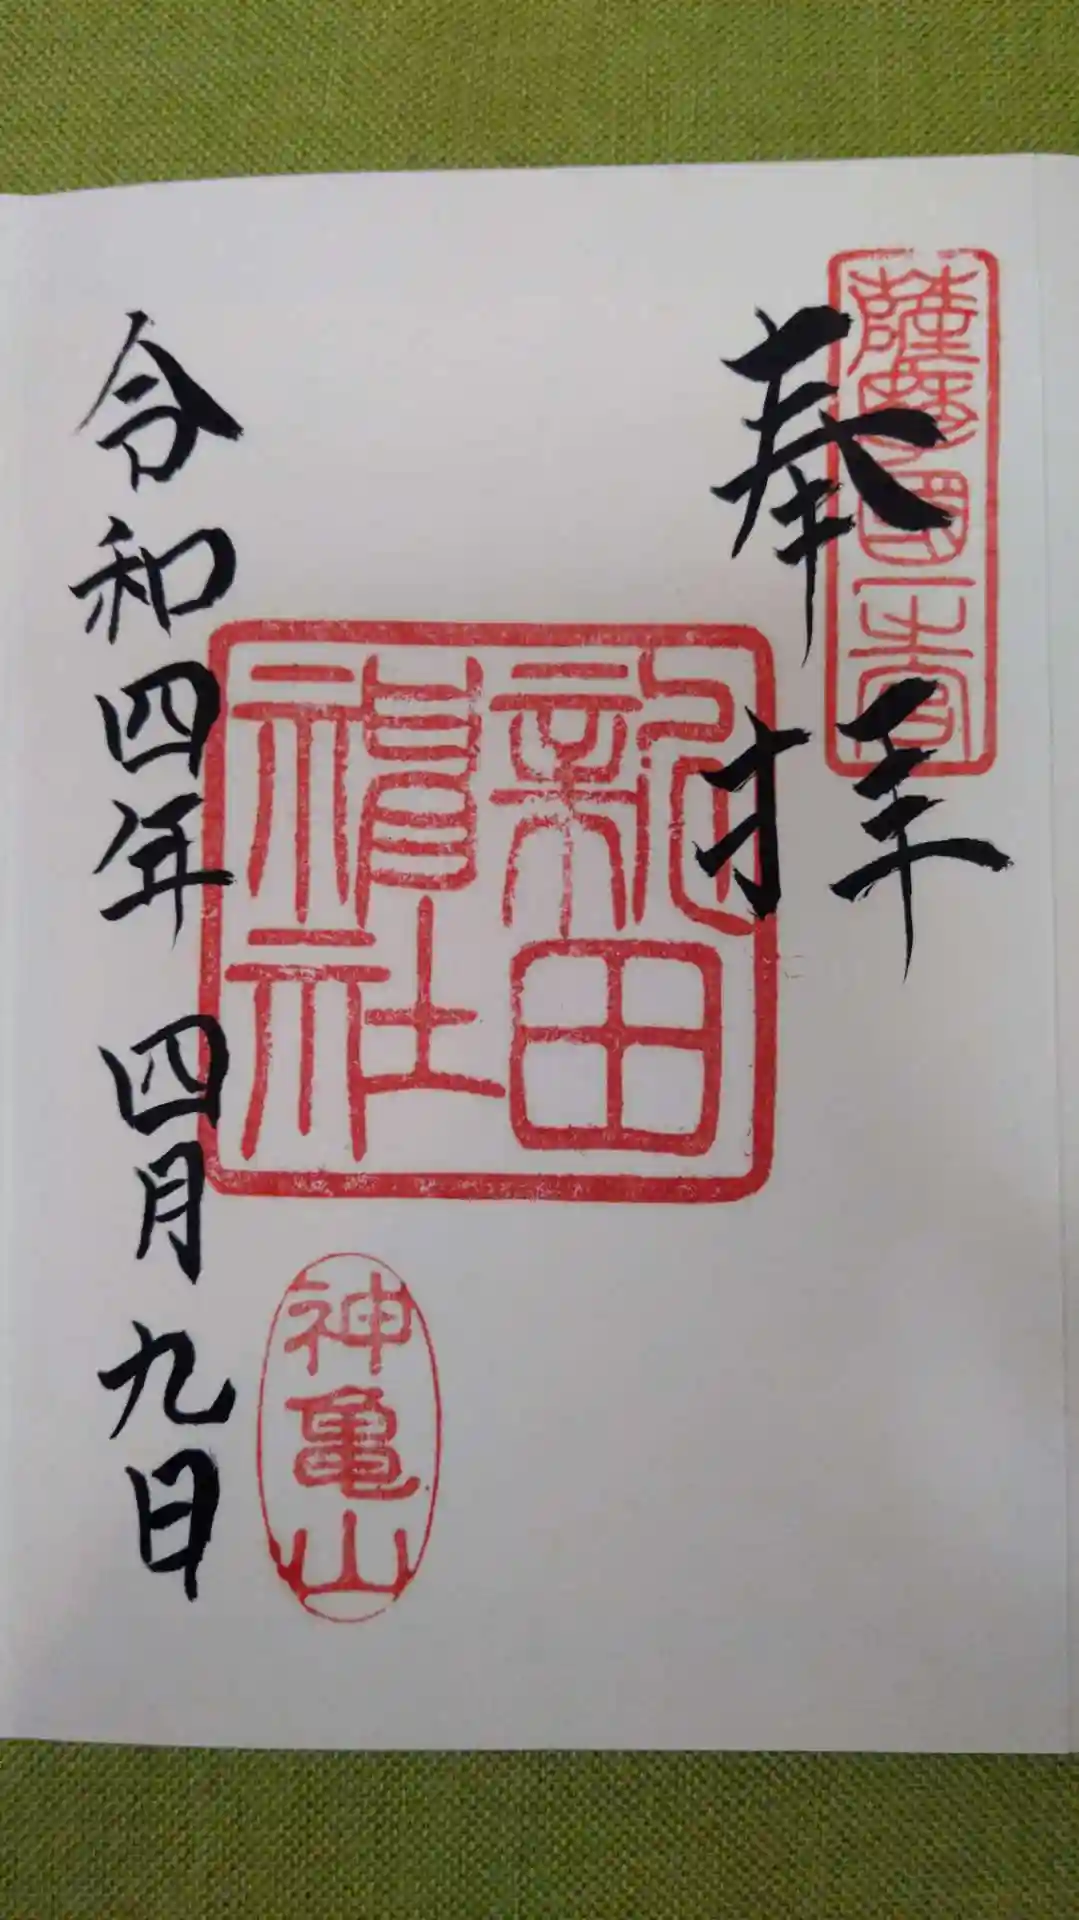 薩摩國一之宮
奉拝
新田
神社
神亀山
令和四年四月九日